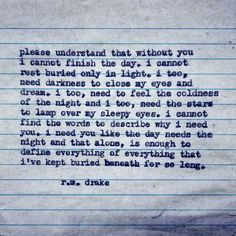 please understand that without you
i cannot finish the day. i cannot
rest buried only in light. i too,
need darkness to close my eyes and
dream. i too, need to feel the coldness
of the night and i too, need the stars
to lamp over my sleepy eyes. i cannot
find the words to describe why i need
you. i need you like the day needs the
night and that alone, is enough to
define everything of everything that
i've kept buried beneath for so long.
r.m. drake